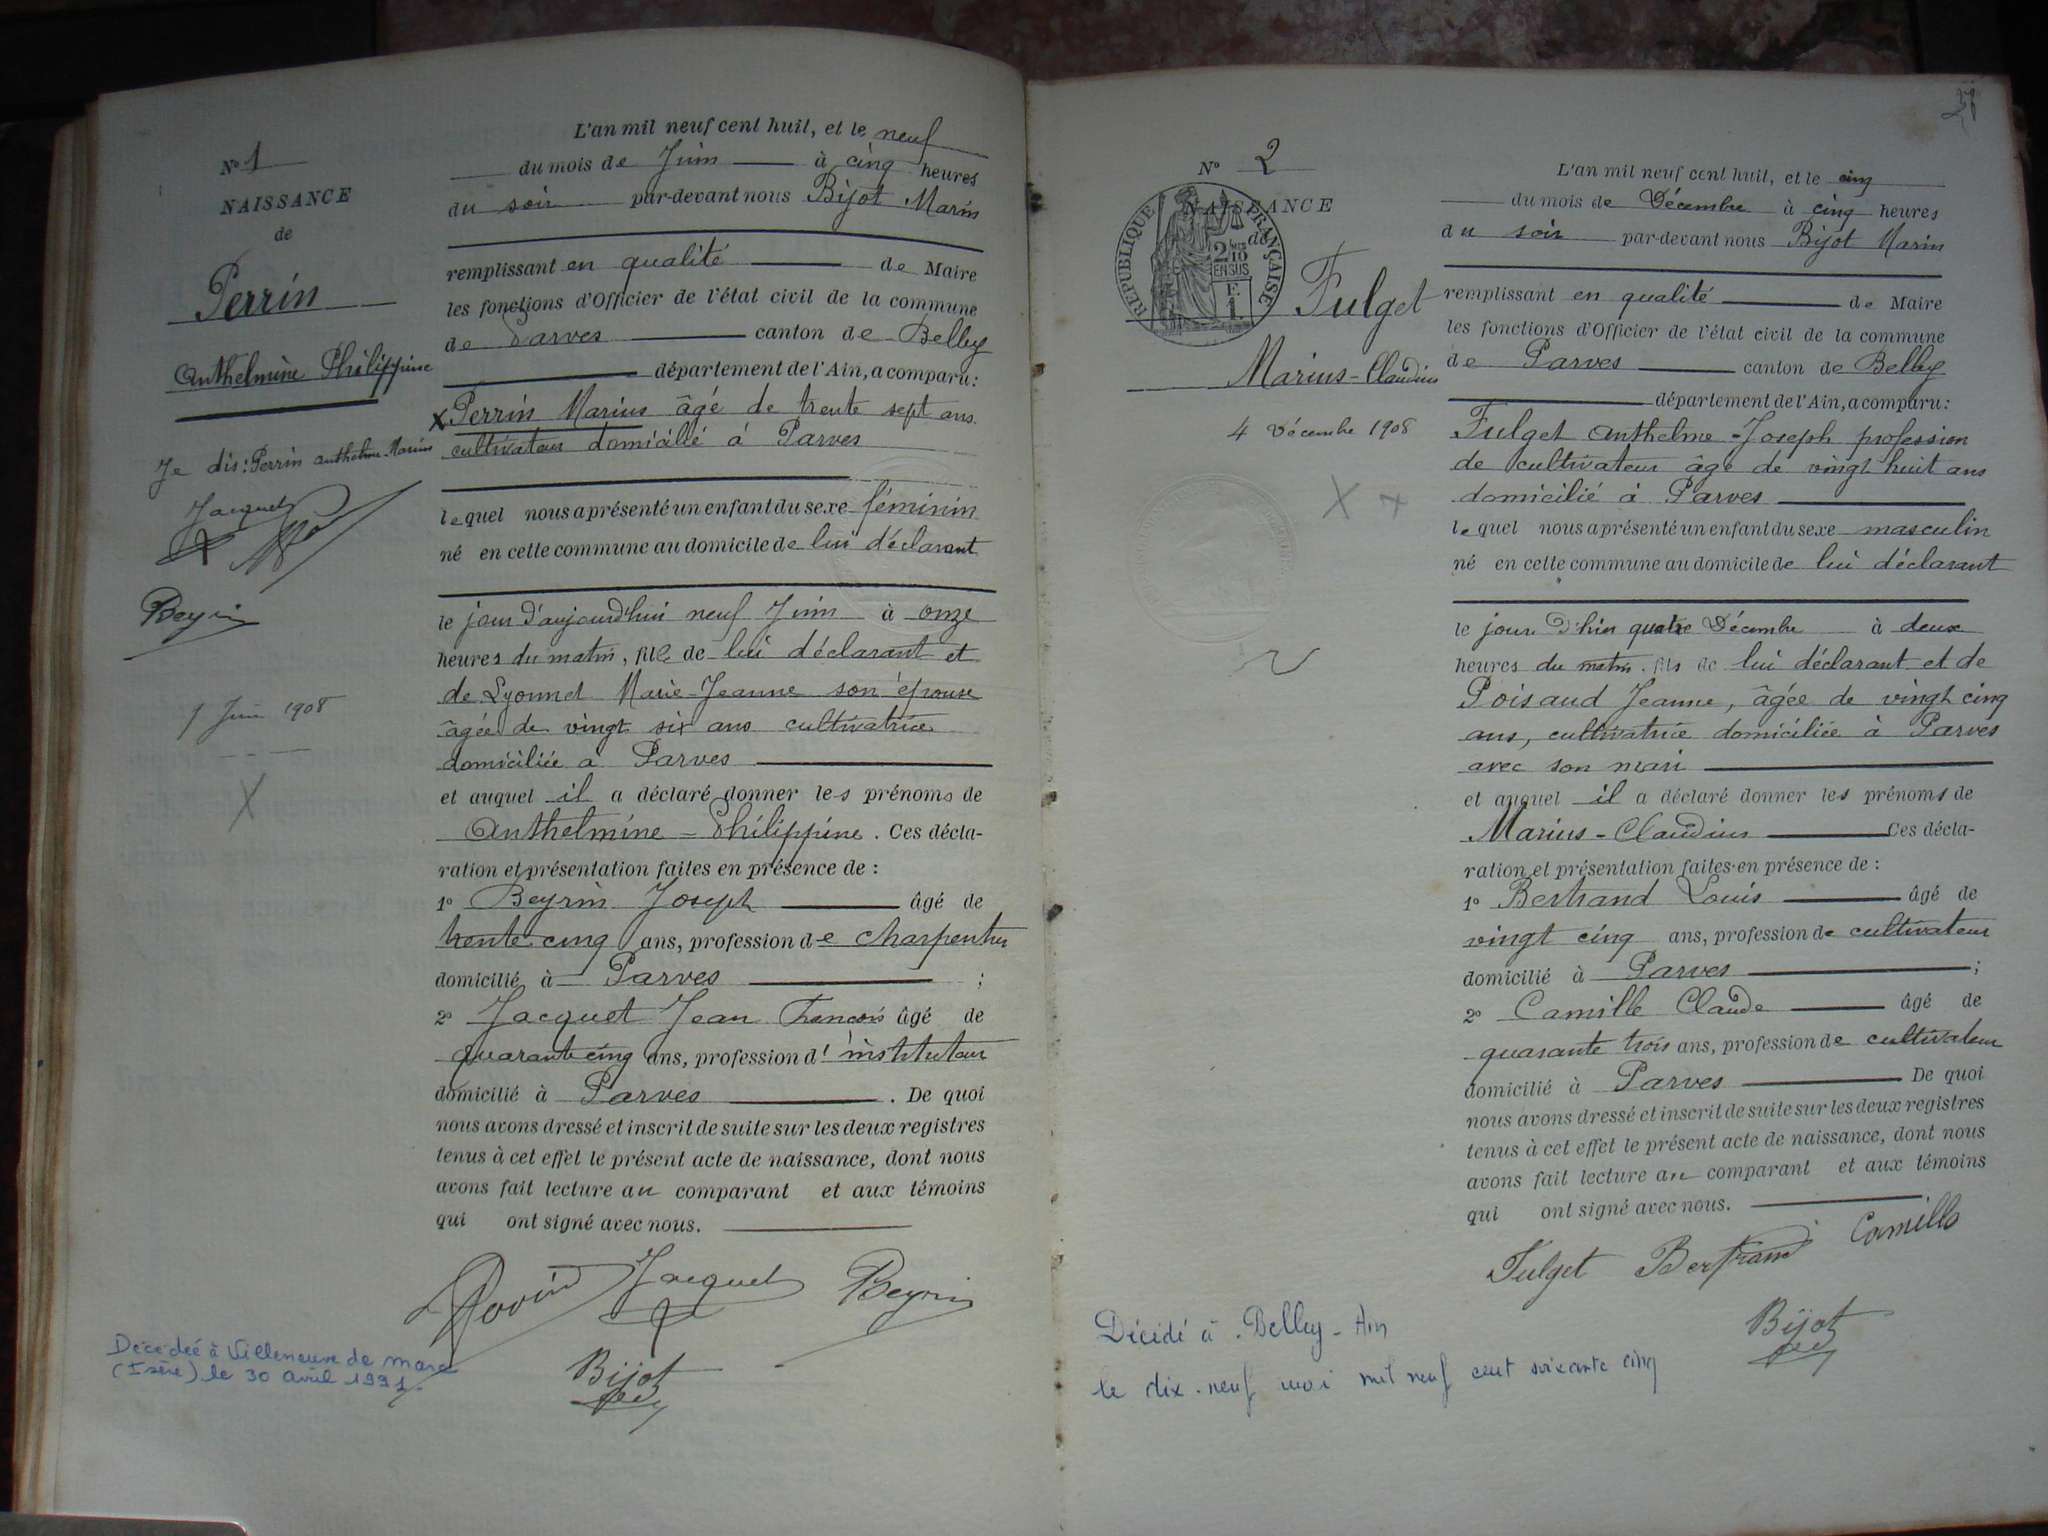 L'an mil neuf cent huit, et le neuf
N° 1
du mois de Juin à cinq heures
NAISSANCE
du soir par-devant nous Bijot Marin
de
remplissant en qualité de Maire
Perrin
les fonctions d'Officier de l'état civil de la commune
de Parves canton de Belley
Anthelmine Philippine
département de l'Ain, a comparu:
X Perrin Marius âgé de trente sept ans
cultivateur domicilié à Parves
Je dis: Perrin anthelme Marius
Jacquet
lequel nous a présenté un enfant du sexe féminin
né en cette commune au domicile de lui déclarant
Beyrin
le jour d'aujourd'hui neuf Juin à onze
heures du matin, fille de lui déclarant et
de Lyonnet Marie-Jeanne son épouse
9 Juin 1908
âgée de vingt six ans cultivatrice
domiciliée a Parves
X
et auquel il a déclaré donner les prénoms de
Anthelmine = Philippine. Ces décla-
ration et présentation faites en présence de :
1° Beyrin Joseph âgé de
trente cinq ans, profession de charpentier
domicilié à Parves ;
2° Jacquet Jean François âgé de
quarante cinq ans, profession d'instituteur
domicilié à Parves. De quoi
nous avons dressé et inscrit de suite sur les deux registres
tenus à cet effet le présent acte de naissance, dont nous
avons fait lecture au comparant et aux témoins
qui ont signé avec nous.
Jacquet Beyrin
Bijot
Décédée à Villeneuve de Marc
(Isère) le 30 avril 1991.
N° 2
NAISSANCE
de
RÉPUBLIQUE FRANÇAISE
2/10
EN SUS
Fulget
Marius-Claudius
4 Décembre 1908
X X
L'an mil neuf cent huit, et le cinq
du mois de Décembre à cinq heures
du soir par-devant nous Bijot Marin
remplissant en qualité de Maire
les fonctions d'Officier de l'état civil de la commune
de Parves canton de Belley
département de l'Ain, a comparu:
Fulget Anthelme-Joseph profession
de cultivateur âgé de vingt huit ans
domicilié à Parves
lequel nous a présenté un enfant du sexe masculin
né en cette commune au domicile de lui déclarant
le jour d'hier quatre Décembre à deux
heures du matin, fils de lui déclarant et de
Poisaud Jeanne, âgée de vingt cinq
ans, cultivatrice domiciliée à Parves
avec son mari
et auquel il a déclaré donner les prénoms de
Marius-Claudius Ces décla-
ration et présentation faites en présence de :
1° Bertrand Louis âgé de
vingt cinq ans, profession de cultivateur
domicilié à Parves ;
2° Camille Claude âgé de
quarante trois ans, profession de cultivateur
domicilié à Parves De quoi
nous avons dressé et inscrit de suite sur les deux registres
tenus à cet effet le présent acte de naissance, dont nous
avons fait lecture au comparant et aux témoins
qui ont signé avec nous.
Fulget Bertrand Camille
Bijot
Décédé à Belley - Ain
le dix-neuf mai mil neuf cent soixante cinq